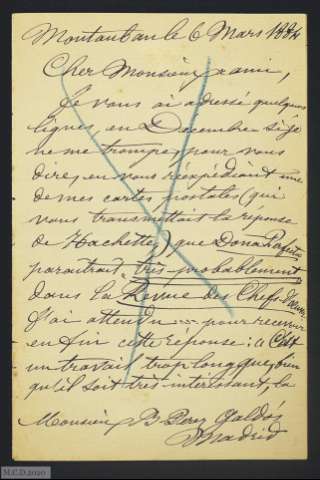 Montauban le 6 Mars 1884
Cher Monsieur & ami,
Je vous ai adressé quelques
lignes, en Décembre si je
ne me trompe, pour vous
dire, en vous réexpédiant une
de mes cartes postales (qui
vous transmettait la réponse
de Hachette) que Dona Perfecta
paraîtrait très probablement
dans la Revue des Chefs-d'œuv.
J'ai attendu pour recevoir
en fin cette réponse: "C'est
un travail trop long que, bien
qu'il soit très intéressant, la
Monsieur B Perez Galdós
Madrid
M.C.D.2020